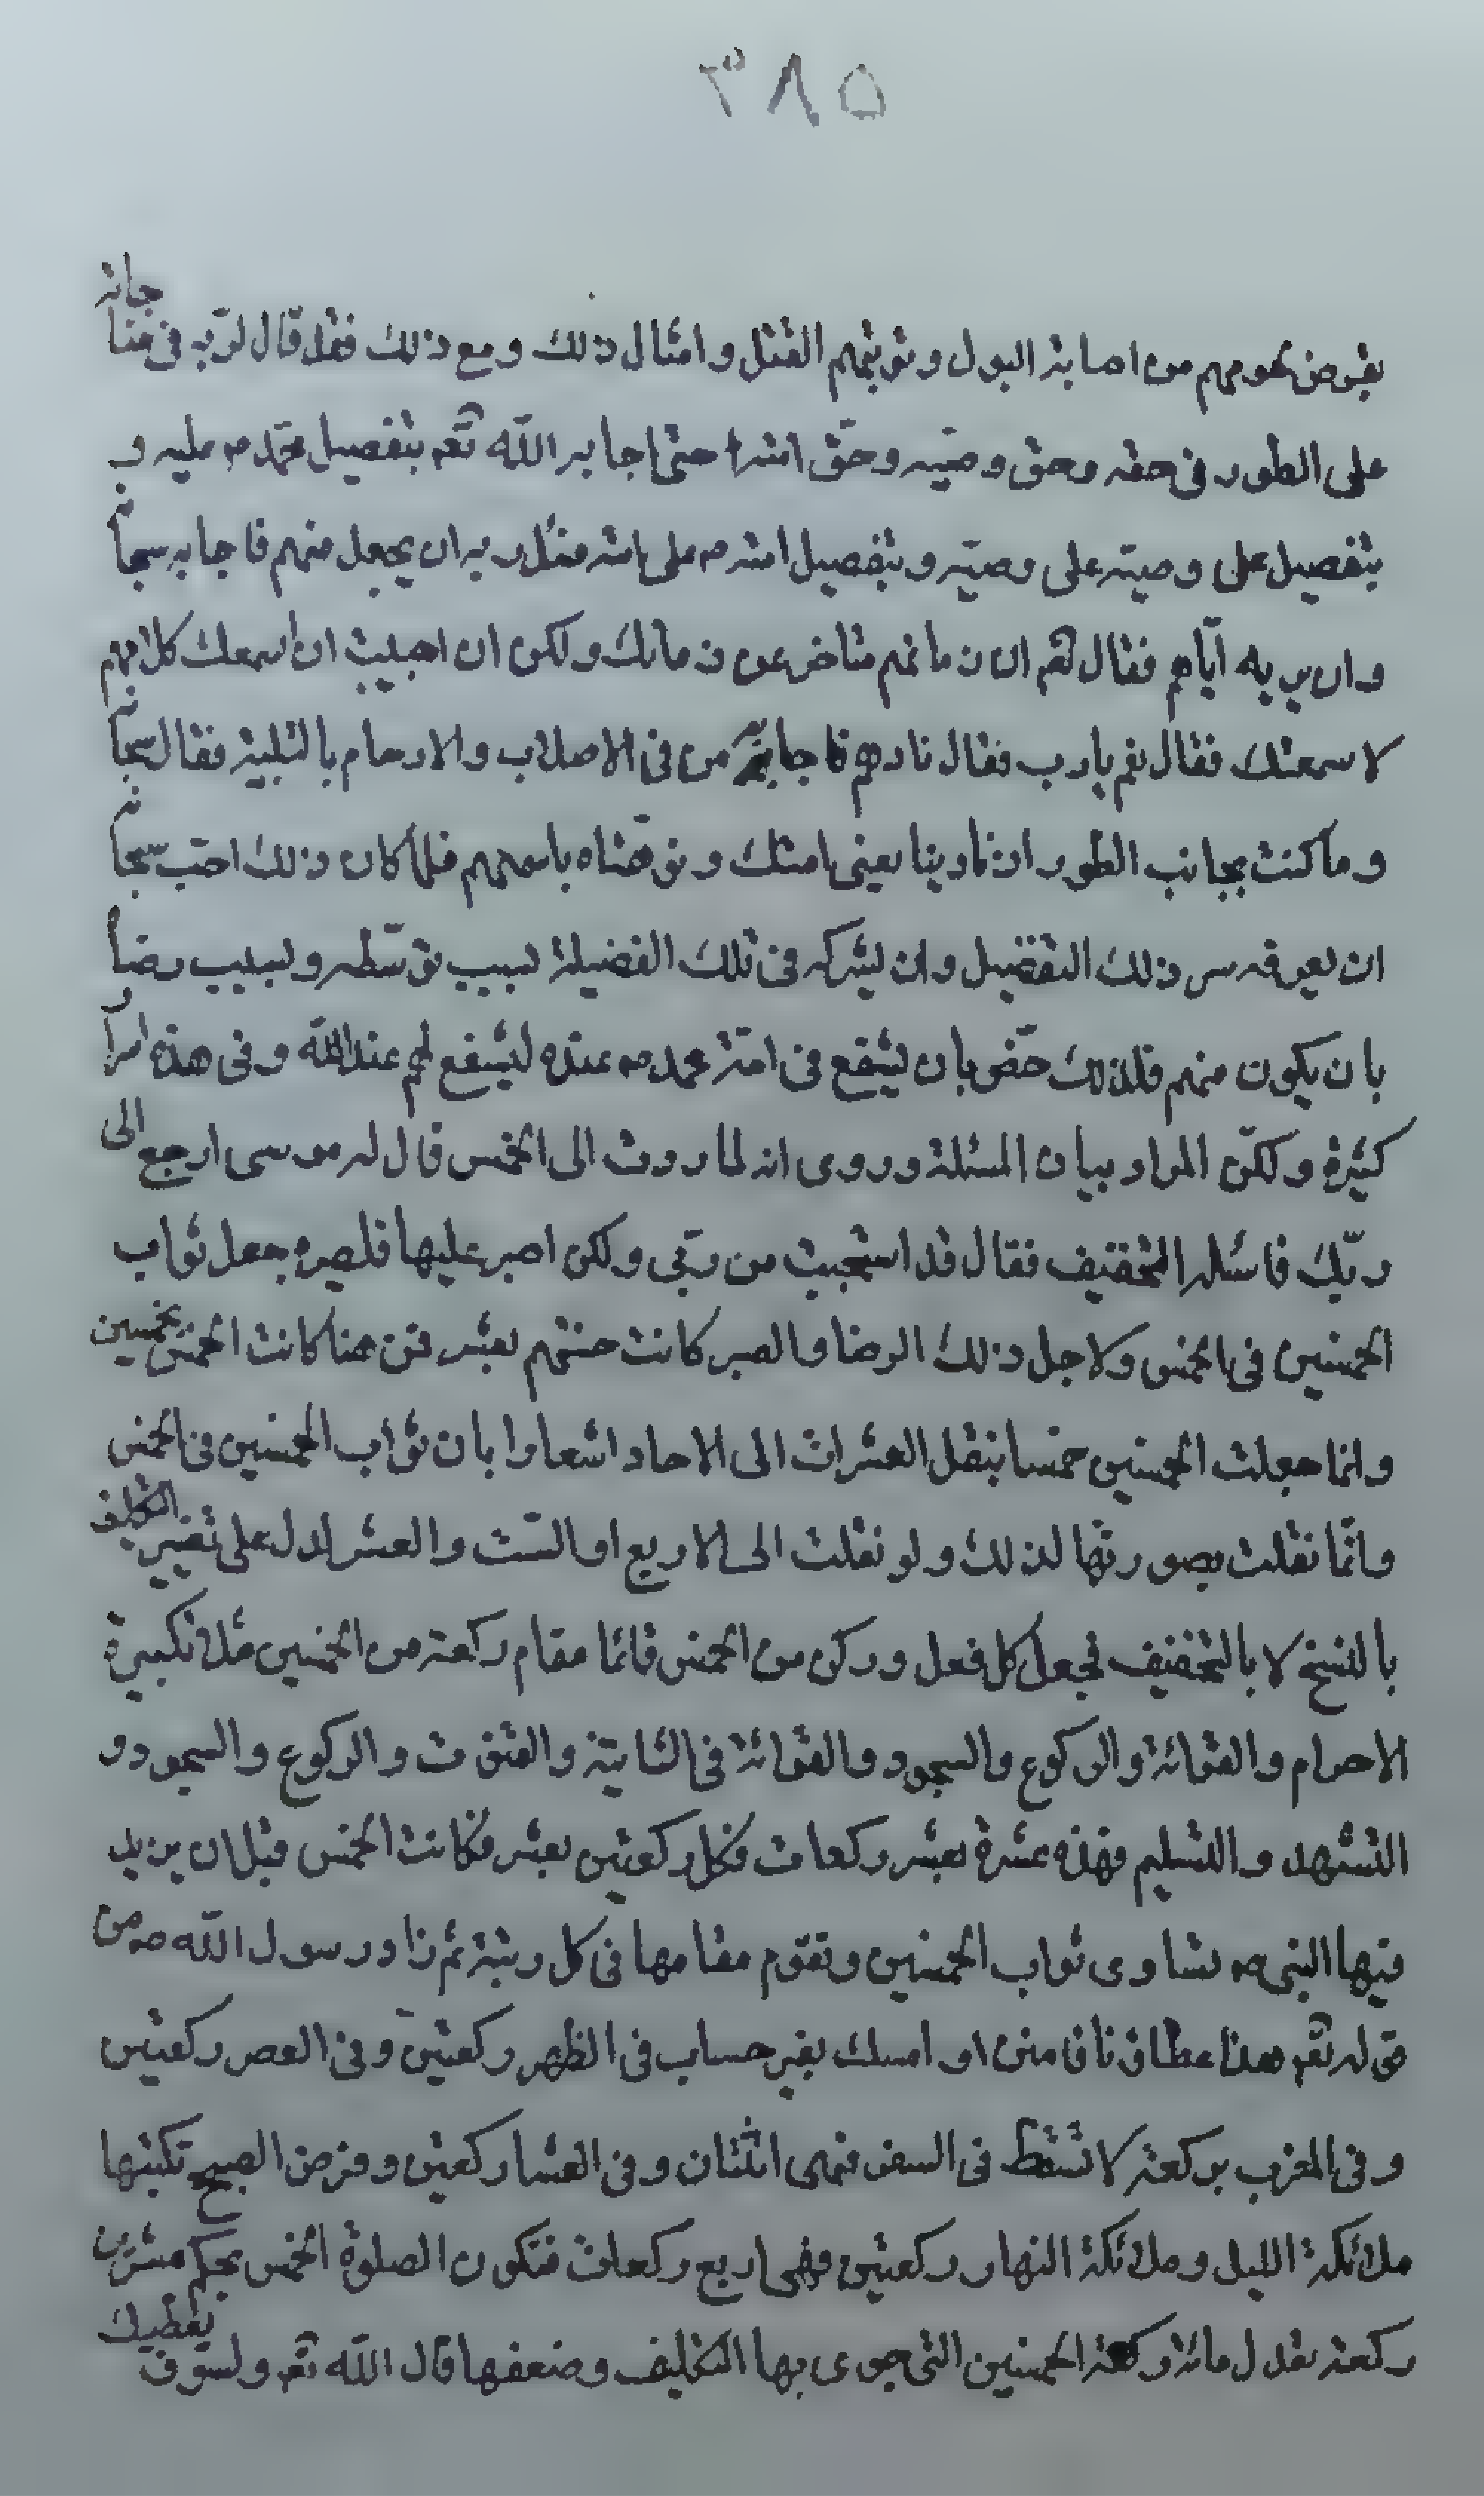 ٥٨٣
بقرض لحومهم من اصابة البول وتوبتهم القتل وامثال ذلك ومع ذلك فقد قال لربّه فى مناجاته
على الطور فى حقه وحق وصيّه وحقّ امته حتى اجابه اللّه تعم بتفضيل محمّد ص عليه و
بتفضيل على وصيّه على وصيّه وبتفضيل امته ص على امته فسئل ربه ان يجعل منهم فاجابه سبحانه
وان يريه ايّاهم فقال تعم ان زمانهم متاخر عن زمانك ولكن ان احببت ان اسمعك كلامهم
لاسمعتك فقال نعم يارب فقال نادهم فاجابه من فى الاصلاب والارحام بالتلبية فقال سبحانه
وما كنت بجانب الطور اذ نادينا يعنى امتك ونوّهناه باسمهم فلما كان ذلك احبّ سبحانه
ان يعرفه سر ذلك التفضيل وان يشركه فى تلك الفضيلة بسبب توسّطه وبسبب رضاه
بان يكون منهم فلذلك خصّ بان يشفع فى امّة محمد ص عنده ليشفع لهم عند اللّه وفى هذه اسرار
كثيرة ولكنّ المراد بيان المسئلة وروى انه لما ردت الى الخمس قال له موسى ارجع الى
ربّك فاسئله التخفيف فقال قد استحييت من ربّى ولكن اصبر عليها فلصبره جعل ثواب
الخمسين فى الخمس ولاجل ذلك الرضا والصبر كانت حسنتهم بعشر فمن هنا كانت الخمس بخمسين
وانما جعلت الخمسين خمسا بنقل العشرات الى الاحاد اشعارا بان ثواب الخمسين فى الخمس
وانّما نقلت بصورتها لذلك ولو نقلت الى الاربع او الستّ والعشر لدل على تغيير التكليف
بالنسخ لا بالتخفيف فجعل كل فعل وركن من الخمس قائما مقام ركعة من الخمسين مثلا تكبيرة
الاحرام والقرائة والركوع والسجود والقرائة فى الثانية والقنوت والركوع والسجود و
التشهد والتسليم فهذه عشرة بعشر ركعات فكل ركعتين بعشر فكانت الخمس قبل ان يزيد
فيها النبى ص تساوى ثواب الخمسين وتقوم مقامها فى كل رتبة ثم زاد رسول اللّه ص من
قوله تعم هذا عطاؤنا فامنن او امسك بغير حساب فى الظهر ركعتين وفى العصر ركعتين
وفى المغرب بركعة لا تسقط فى السفر فهى اثنتان وفى العشا ركعتين وفرض الصبح تكتبها
ملائكة الليل وملائكة النهار ركعتين فهى اربع ركعات فتكون الصلوة الخمس بحكم عشرين
ركعة تعدل مائة ركعة الخمسين التى جرى بها التكليف وضعفها قال اللّه تعم ولسوف يعطيك